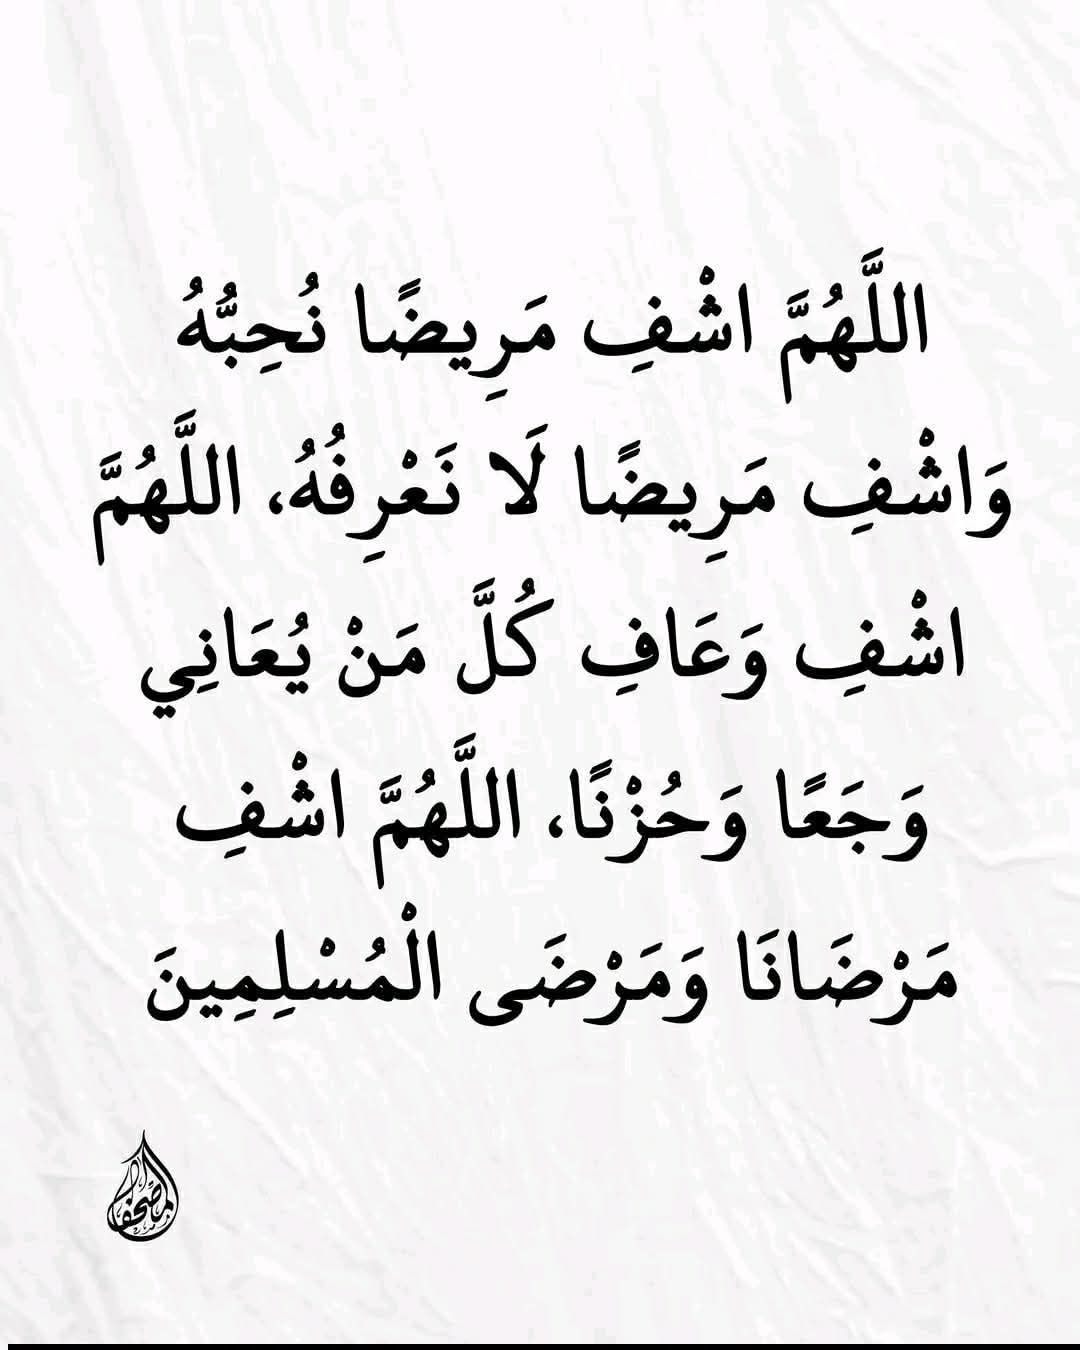 اللَّهُمَّ اشْفِ مَرِيضًا نُحِبُّهُ
وَاشْفِ مَرِيضًا لَا نَعْرِفُهُ، اللَّهُمَّ
اشْفِ وَعَافِ كُلَّ مَنْ يُعَانِي
وَجَعًا وَحُزْنًا، اللَّهُمَّ اشْفِ
مَرْضَانَا وَمَرْضَى الْمُسْلِمِينَ